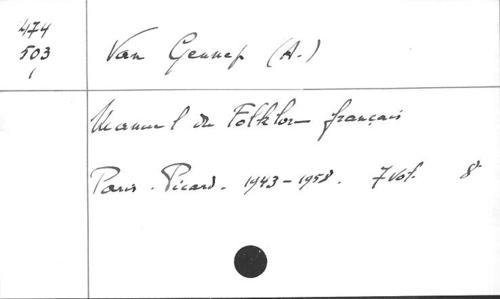 474
503
Van Gennep (A.)
Manuel du Folklore français
Paris. Picard. 1943-1958. 7 vol. 8